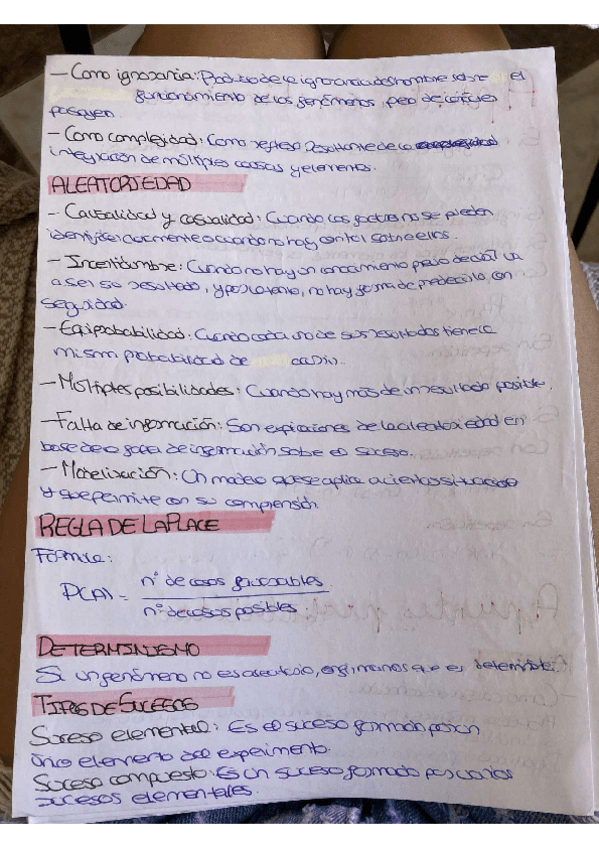 - Como ignorancia: Producto de la ignorancia del hombre sobre el
funcionamiento de los fenómenos, pero de causas
poseyen.
- Como complejidad: Como reflejo resultante de la
integración de múltiples causas y elementos.
ALEATORIEDAD
- Causalidad y casualidad: Cuando los factores no se pueden
identificar claramente o cuando no hay control sobre ellos.
- Incertidumbre: Cuando no hay un conocimiento previo de cuál va
a ser su resultado, y por lo tanto, no hay forma de predecirlo con
seguridad.
- Equiprobabilidad: Cuando cada uno de sus resultados tiene la
misma probabilidad de
- Múltiples posibilidades: Cuando hay más de un resultado posible.
- Falta de información: Son expresiones de la aleatoriedad en
base de la falta de información sobre el suceso.
- Modelización: Un modelo que se aplica a ciertas situaciones
y que permite con su comprensión
REGLA DE LAPLACE
Fórmula:
P(A) = nº de casos favorables
nº de casos posibles
DETERMINISMO
Si un fenómeno no es aleatorio, afirmamos que es determinista.
TIPOS DE SUCESOS
Suceso elemental: Es el suceso formado por un
único elemento del experimento.
Suceso compuesto: Es un suceso formado por varios
sucesos elementales.